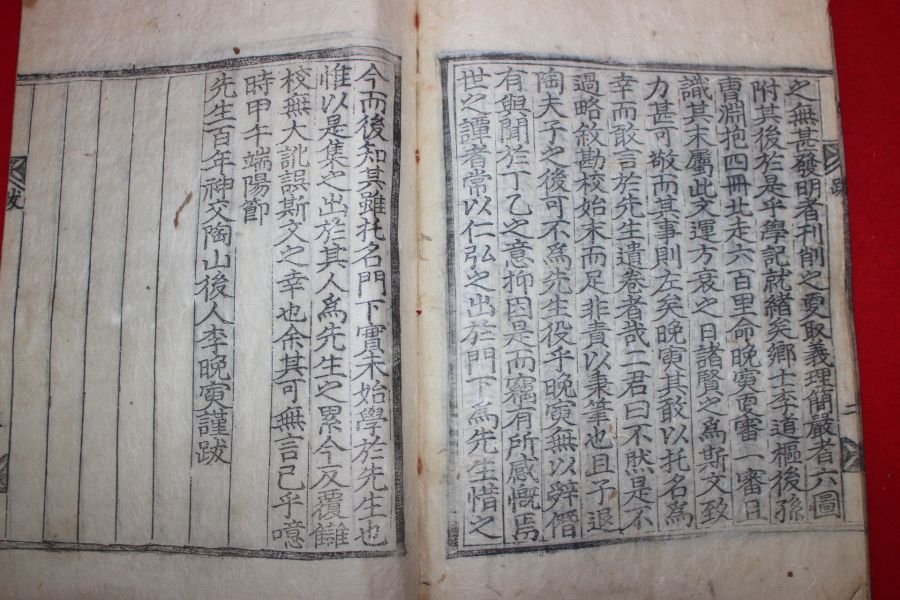 之無甚發明者刊削之更取義理簡嚴者六圖
附其後於是乎學記就緒矣鄕士李道樞後孫
曺淵抱四冊北走六百里命晩寅更審一審且
識其末屬此文運方衰之日諸賢之爲斯文致
力甚可敬而其事則左矣晩寅其敢以托名爲
幸而敢言於先生遺卷者哉二君曰不然是不
過略敘勘校始末而足非責以秉筆也且子退
陶夫子之後可不爲先生役乎晩寅無以辭僭
有與聞於丁乙之意抑因是而竊有所感慨焉
世之譚者常以仁弘之出於門下爲先生惜之
今而後知其雖托名門下實未始學於先生也
惟以是集之出於其人爲先生之累今反覆讎
校無大訛誤斯文之幸也余其可無言已乎噫
時甲午端陽節
先生百年神交陶山後人李晩寅謹跋
跋
跋
二